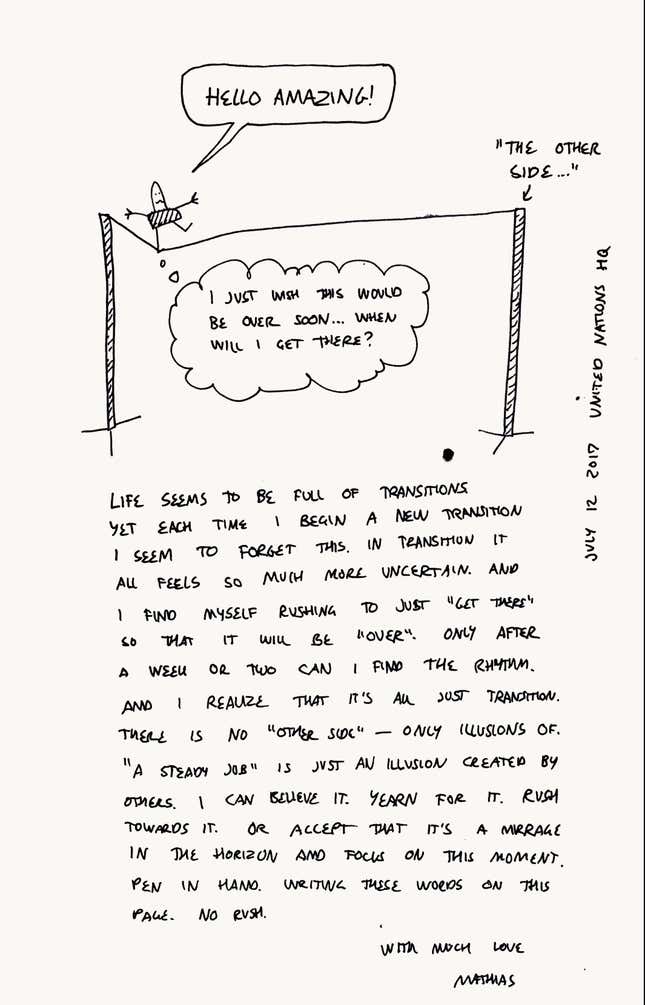 HELLO AMAZING!
"THE OTHER
SIDE..."
I JUST WISH THIS WOULD
BE OVER SOON... WHEN
WILL I GET THERE?
JULY 12 2017 UNITED NATIONS HQ
LIFE SEEMS TO BE FULL OF TRANSITIONS
YET EACH TIME I BEGIN A NEW TRANSITION
I SEEM TO FORGET THIS. IN TRANSITION IT
ALL FEELS SO MUCH MORE UNCERTAIN. AND
I FIND MYSELF RUSHING TO JUST "GET THERE"
SO THAT IT WILL BE "OVER". ONLY AFTER
A WEEK OR TWO CAN I FIND THE RHYTHM.
AND I REALIZE THAT IT'S ALL JUST TRANSITION.
THERE IS NO "OTHER SIDE" — ONLY ILLUSIONS OF.
"A STEADY JOB" IS JUST AN ILLUSION CREATED BY
OTHERS. I CAN BELIEVE IT. YEARN FOR IT. RUSH
TOWARDS IT. OR ACCEPT THAT IT'S A MIRRAGE
IN THE HORIZON AND FOCUS ON THIS MOMENT.
PEN IN HAND. WRITING THESE WORDS ON THIS
PAGE. NO RUSH.
WITH MUCH LOVE
MATHIAS